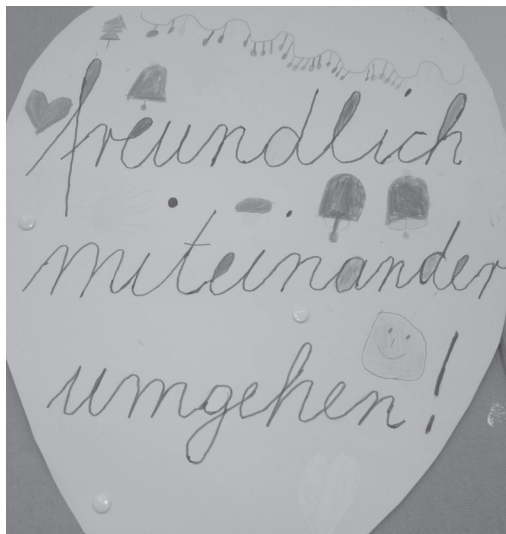 freundlich
miteinander
umgehen!